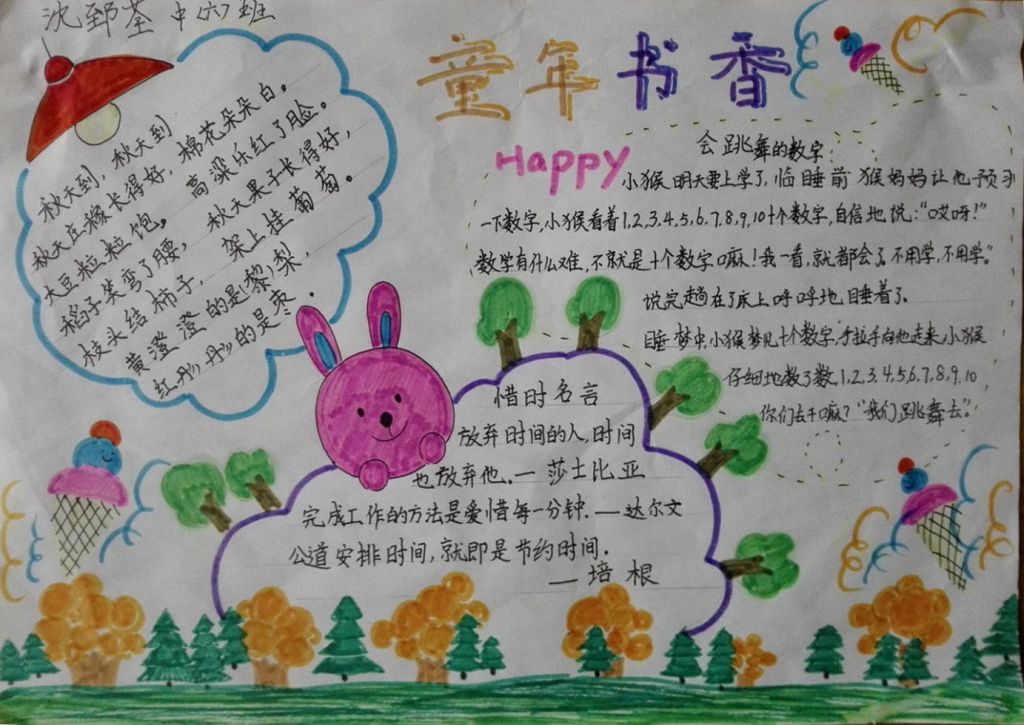 沈郅荃 中(六)班
童年书香
Happy
秋天到,秋天到
秋天庄稼长得好,棉花朵朵白。
大豆粒粒饱。高粱乐红了脸。
稻子笑弯了腰,秋天果子长得好,
枝头结柿子,架上挂葡萄。
黄澄澄的是(黎)梨,
红彤(丹)的是枣.
会跳舞的数字
小猴明天要上学了,临睡前猴妈妈让他预习
一下数字,小猴看着1,2,3,4,5,6,7,8,9,10十个数字,自信地说:“哎呀!”
数学有什么难,不就是十个数字嘛!我一看,就都会了,不用学,不用学”
说完趟在了床上呼呼地睡着了.
睡梦中,小猴梦见十个数字,手拉手向他走来,小猴
仔细地数了数,1,2,3,4,5,6,7,8,9,10
你们去干嘛?“我们跳舞去”.
惜时名言
放弃时间的人,时间
也放弃他.—莎士比亚
完成工作的方法是爱惜每一分钟.—达尔文
公道安排时间,就即是节约时间.
—培根